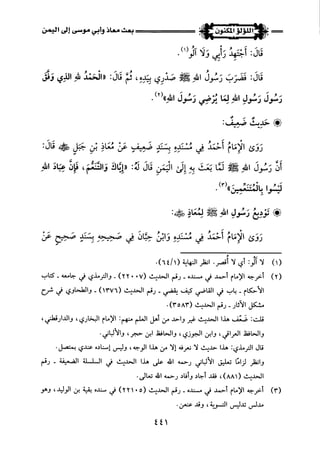 اللؤلؤ المكنون
بعث معاذ وأبي موسى إلى اليمن
قَالَ: أَجْتَهِدُ رَأْيِي وَلَا آلُو(١).
قَالَ: فَضَرَبَ رَسُولُ اللهِ ﷺ صَدْرِي بِيَدِهِ، ثُمَّ قَالَ: «الْحَمْدُ للهِ الَّذِي وَفَّقَ
رَسُولَ رَسُولِ اللهِ لِمَا يُرْضِي رَسُولَ اللهِ»(٢).
◉ حَدِيثٌ ضَعِيفٌ:
رَوَى الْإِمَامُ أَحْمَدُ فِي مُسْنَدِهِ بِسَنَدٍ ضَعِيفٍ عَنْ مُعَاذِ بْنِ جَبَلٍ ﷺ قَالَ:
أَنَّ رَسُولَ اللهِ ﷺ لَمَّا بَعَثَ بِهِ إِلَى الْيَمَنِ قَالَ لَهُ: «إِيَّاكَ وَالتَّنَعُّمَ، فَإِنَّ عِبَادَ اللهِ
لَيْسُوا بِالْمُتَنَعِّمِينَ»(٣).
◉ تَوْدِيعُ رَسُولِ اللهِ ﷺ لِمُعَاذٍ ﷺ:
رَوَى الْإِمَامُ أَحْمَدُ فِي مُسْنَدِهِ وَابْنُ حِبَّانَ فِي صَحِيحِهِ بِسَنَدٍ صَحِيحٍ عَنْ
(١) لا آلُو: أي لا أُقصر. انظر النهاية (١/ ٦٤).
(٢) أخرجه الإمام أحمد في مسنده ـ رقم الحديث (٢٢٠٠٧) ـ والترمذي في جامعه ـ كتاب
الأحكام ـ باب ما جاء في القاضي كيف يقضي ـ رقم الحديث (١٣٧٦) ـ والطحاوي في شرح
مشكل الآثار ـ رقم الحديث (٣٥٨٣).
قلت: ضعَّف هذا الحديث غير واحد من أهل العلم منهم: الإمام البخاري، والدارقطني،
والحافظ العراقي، وابن الجوزي، والحافظ ابن حجر، والألباني.
قال الترمذي: هذا حديث لا نعرفه إلا من هذا الوجه، وليس إسناده عندي بمتصل.
وانظر لزامًا تعليق الألباني رحمه الله على هذا الحديث في السلسلة الضعيفة ـ رقم
الحديث (٨٨١)، فقد أجاد وأفاد رحمه الله تعالى.
(٣) أخرجه الإمام أحمد في مسنده ـ رقم الحديث (٢٢١٠٥) وفي سنده بقية بن الوليد، وهو
مدلس تدليس التسوية، وقد عنعن.
٤٤١